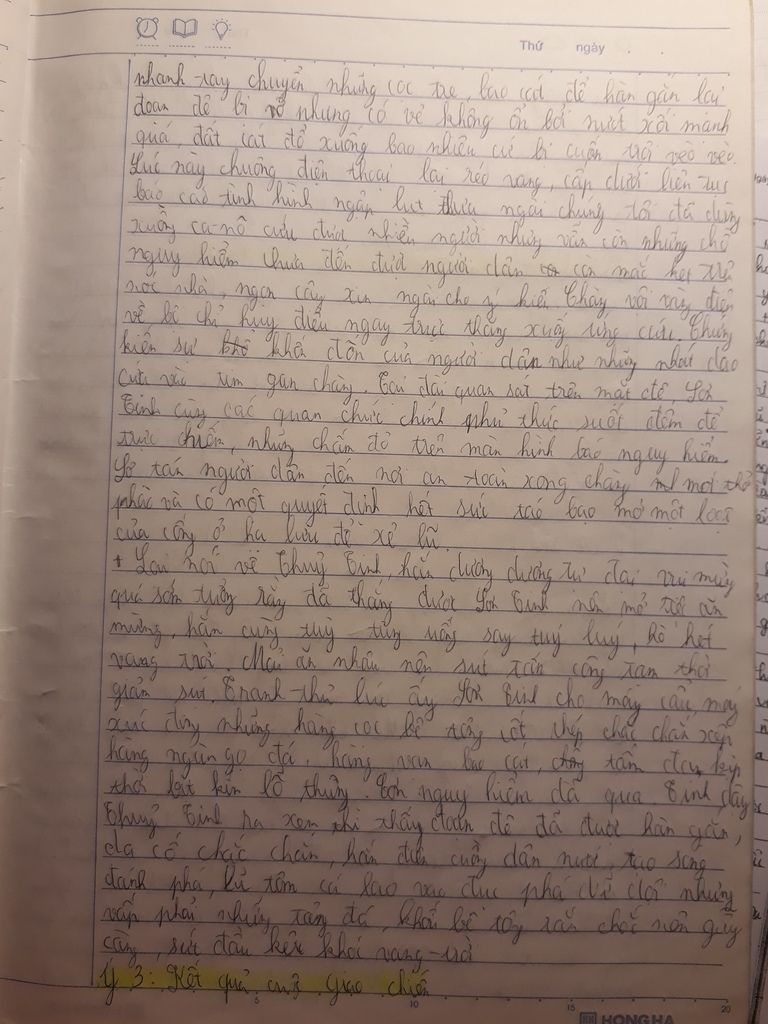 Thứ ngày
nhanh tay chuyển những cọc tre, bao cát để hàn gắn lại
đoạn đê bị vỡ nhưng có vẻ không ổn bởi nước xối mạnh
quá, đất cát đổ xuống bao nhiêu cứ bị cuốn trôi vèo vèo.
Lúc này chuông điện thoại lại réo vang, cấp dưới liên tục
báo cáo tình hình ngập lụt thưa ngài chúng tôi đã dùng
xuồng ca-nô cứu được nhiều người nhưng vẫn còn những chỗ
nguy hiểm chưa đến được người dân còn mắc kẹt trên
nóc nhà, ngọn cây xin ngài cho ý kiến. Chàng vội vàng điện
về bộ chỉ huy điều ngay trực thăng xuống ứng cứu. Chứng
kiến sự khốn đốn của người dân như những nhát dao
cứa vào tim gan chàng. Tại đài quan sát trên mặt đê, Sơn
Tinh cùng các quan chức chính phủ thức suốt đêm để
trực chiến, những chấm đỏ trên màn hình báo nguy hiểm.
Sơ tán người dân đến nơi an toàn xong chàng mới thở
phào và có một quyết định hết sức táo bạo mở một loạt
cửa cống ở hạ lưu để xả lũ.
+ Lại nói về Thuỷ Tinh, hắn dương dương tự đại vui mừng
quá sớm tưởng rằng đã thắng được Sơn Tinh nên mở tiệc ăn
mừng, hắn cùng tuỳ tùng uống say tuý luý, hò hét
vang trời. Mải ăn nhậu nên sức tấn công tạm thời
giảm sút. Tranh thủ lúc ấy Sơn Tinh cho máy cẩu, máy
xúc dùng những hàng cọc bê tông cốt thép chắc chắn xếp
hàng ngàn gọ đá, hàng vạn bao cát, tấm đan kịp
thời bịt kín lỗ thủng. Cơn nguy hiểm đã qua. Tỉnh dậy
Thuỷ Tinh ra xem thì thấy đoạn đê đã được hàn gắn,
gia cố chắc chắn, hắn điên cuồng dâng nước, tạo sóng
đánh phá, lũ tôm cá lao vào đục phá dữ dội nhưng
vấp phải những tảng đá, khối bê tông rắn chắc nên gãy
càng, sứt đầu kêu khóc vang trời
Ý 3: Kết quả cuộc giao chiến
5 10 15 20
HONG HA